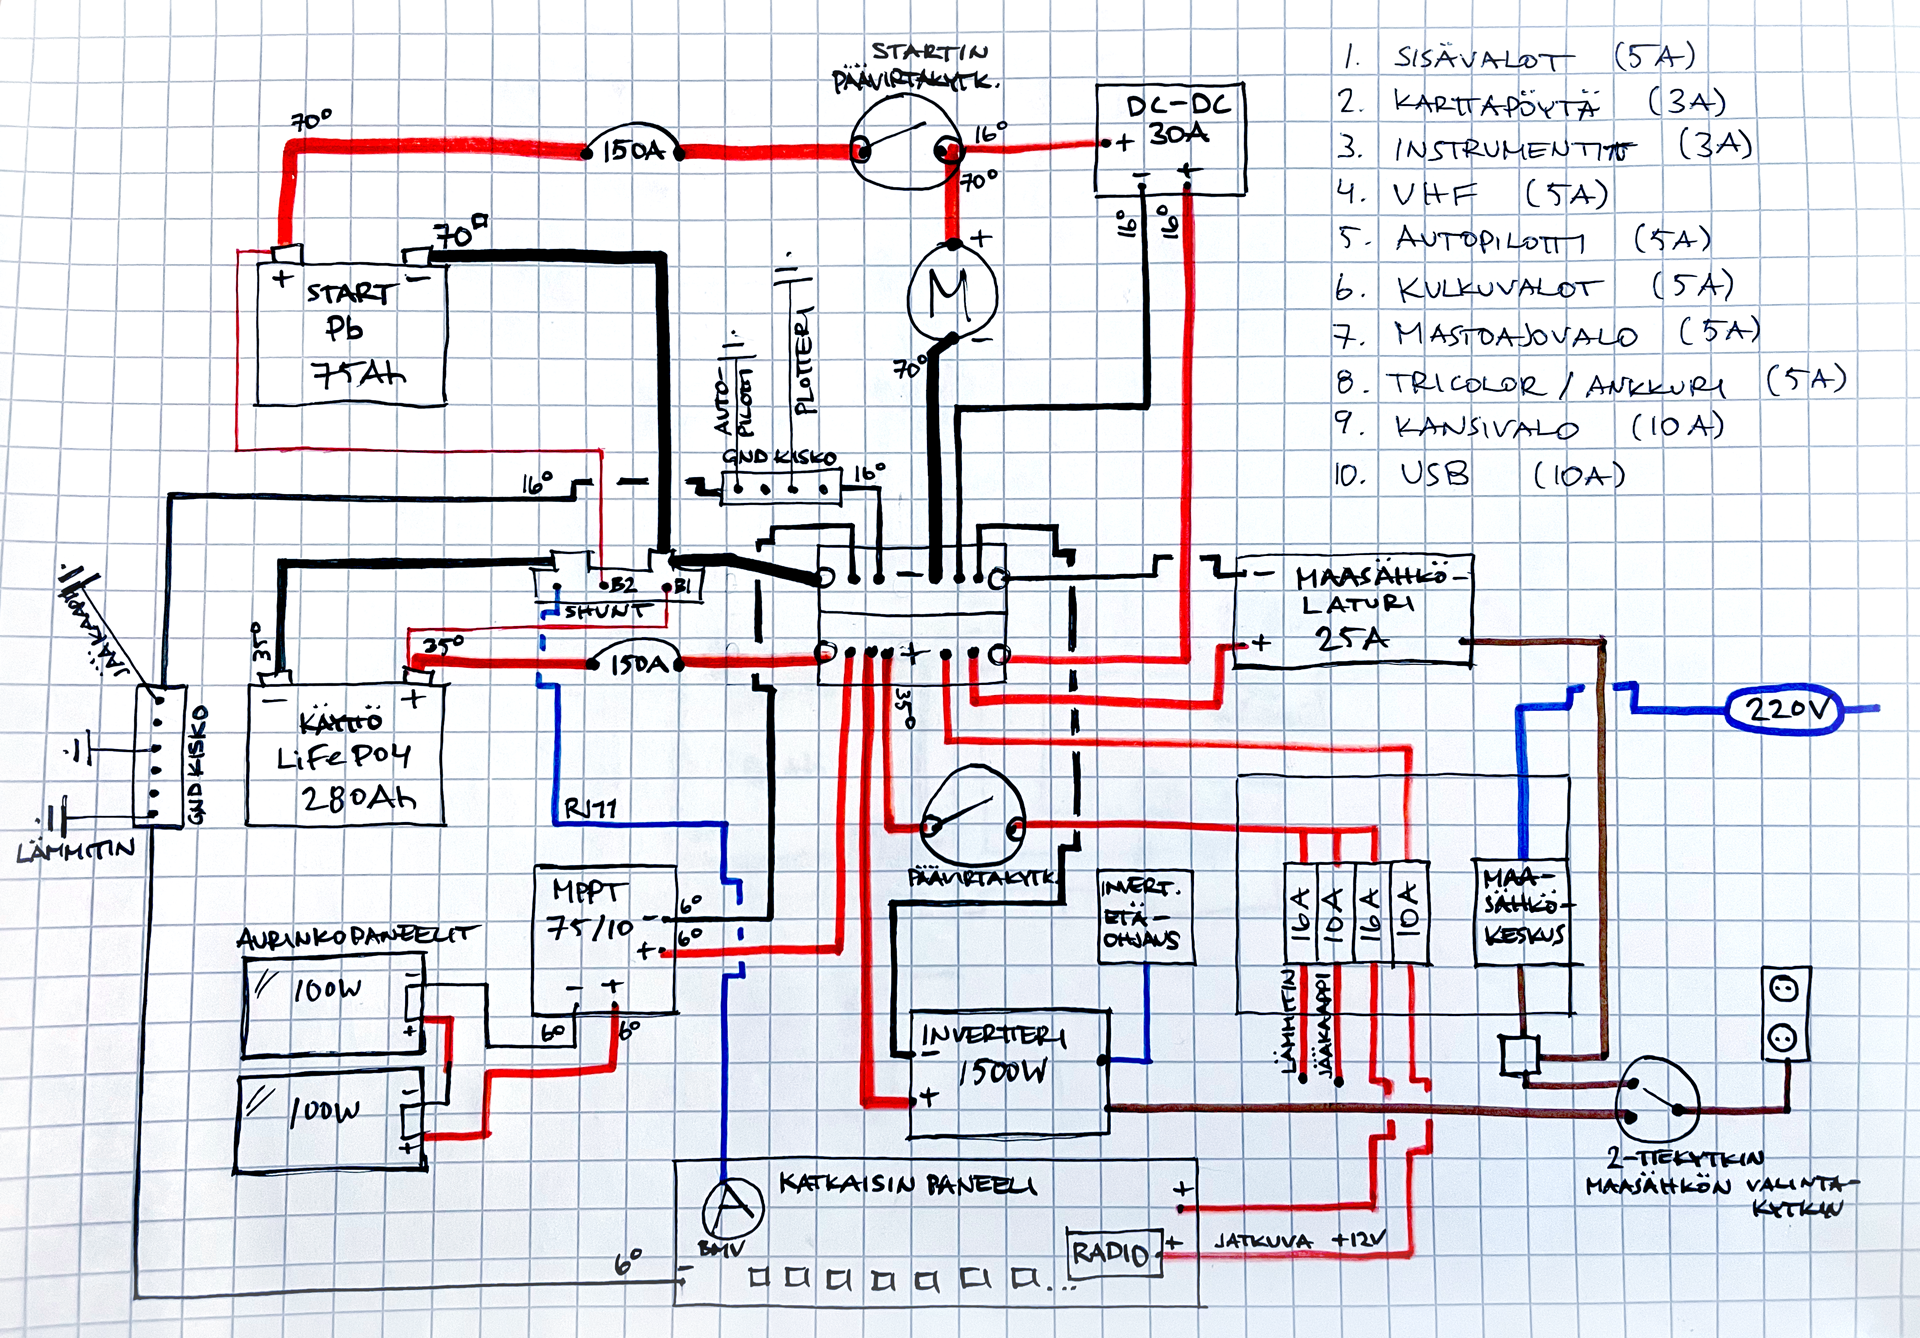 STARTIN
PÄÄVIRTAKYTK.
70°
150A
16°
70°
DC-DC
30A
+
-
+
16°
16°
70°
+
-
START
Pb
75Ah
+
M
-
70°
AUTO-
PILOTTI
PLOTTERI
GND KISKO
16°
16°
B2
B1
SHUNT
-
+
35°
35°
150A
35°
-
+
KÄYTTÖ
LiFePO4
280Ah
JÄÄKAAPPI
GND KISKO
LÄMMITIN
RJ11
MAASÄHKÖ-
LATURI
25A
-
+
220V
PÄÄVIRTAKYTK.
MPPT
75/10
-
6°
+
6°
-
+
6°
6°
AURINKOPANEELIT
100W
-
+
100W
-
+
INVERT.
ETÄ-
OHJAUS
INVERTTERI
1500W
-
+
16A
10A
16A
10A
LÄMMITIN
JÄÄKAAPPI
MAA-
SÄHKÖ-
KESKUS
2-TIEKYTKIN
MAASÄHKÖN VALINTA-
KYTKIN
KATKAISIN PANEELI
A
BMV
6°
-
+
RADIO
+
JATKUVA +12V
1. SISÄVALOT (5A)
2. KARTTAPÖYTÄ (3A)
3. INSTRUMENTIT (3A)
4. VHF (5A)
5. AUTOPILOTTI (5A)
6. KULKUVALOT (5A)
7. MASTOAJOVALO (5A)
8. TRICOLOR / ANKKURI (5A)
9. KANSIVALO (10A)
10. USB (10A)